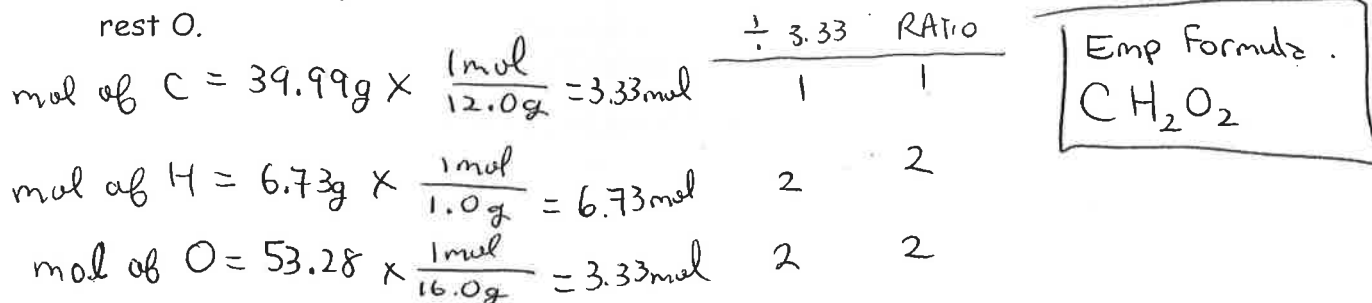 rest O.
÷ 3.33 RATIO
mol of C = 39.99g × 1mol/12.0g = 3.33mol 1 1
mol of H = 6.73g × 1mol/1.0g = 6.73mol 2 2
mol of O = 53.28 × 1mol/16.0g = 3.33mol 2 2
Emp Formula.
CH₂O₂